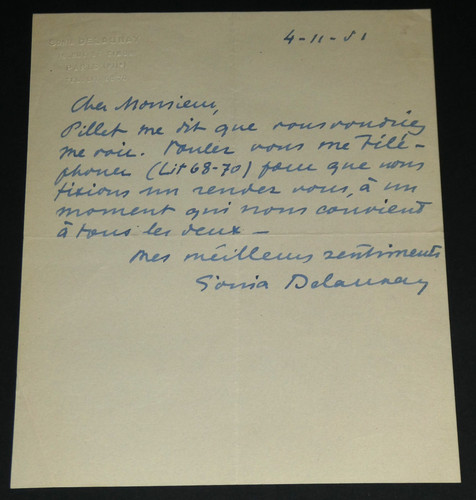 4-11-51
Cher Monsieur,
Pillet me dit que vous voudriez
me voir. Voulez vous me télé-
phoner (Lit 68-70) pour que nous
fixions un rendez vous, à un
moment qui nous convient
à tous les deux —
Mes méilleurs sentiments
Sonia Delaunay